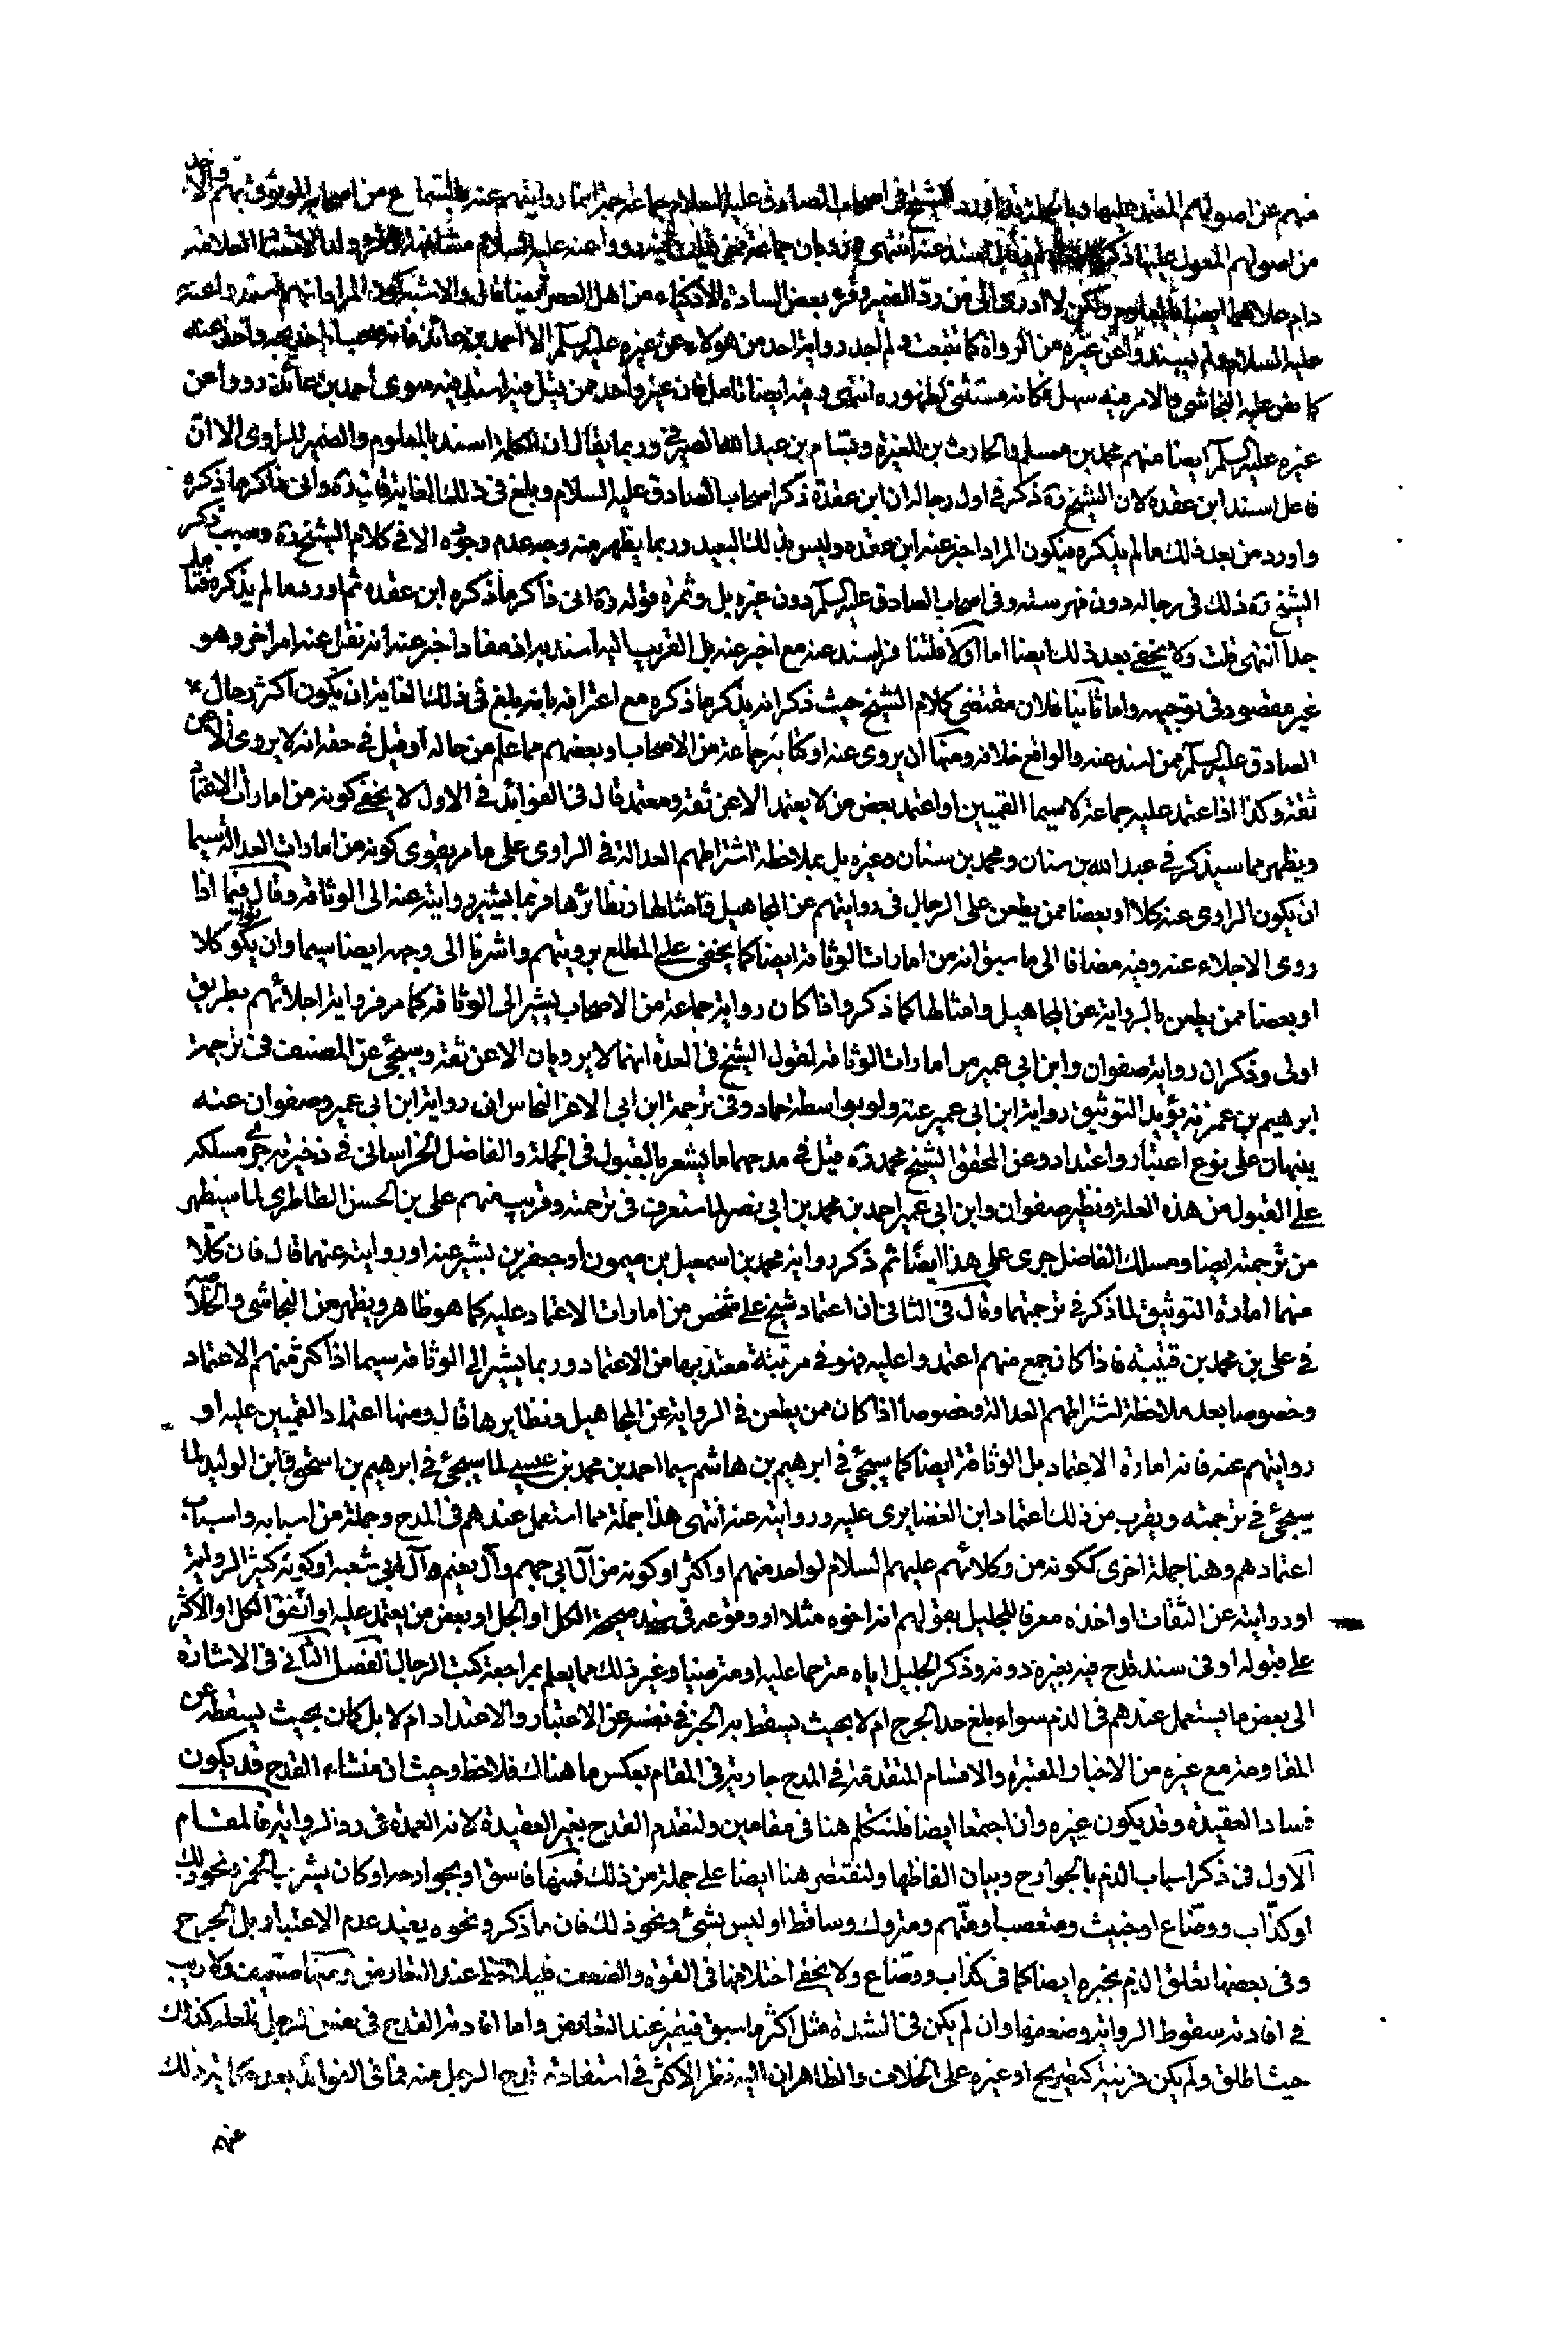 منهم عن اصولهم المعتمد عليها وبالجملة قد اورد الشيخ في اصحاب الصادق عليه السلام جماعة جمة انما روايتهم عنه بالسماع من اصحابه الموثوق بهم والاخذ
من اصولهم المعول عليها ذكر
دام علاهما ايضا بالمعلوم ولكن لا ادرى الى من ردّ الضمير وقرء بعض السادة الاذكياء من اهل العصر ايضا قال والاشبه كون المراد انهم اسندوا عنه
عليه السلام ولم يسندوا عن غيره من الرواة كما تتبعت ولم اجد رواية احد من هؤلاء عن غيره عليه السلم الا احمد بن عائذ فانه صحب ابا خديجة واخذ عنه
كما نص عليه النجاشي والامر فيه سهل فكانه مستثنى لظهوره انتهى وفيه ايضا تامل فان غير واحد ممن قيل فيه اسند عنه سوى احمد بن عائذ رووا عن
غيره عليه السلم ايضا منهم محمد بن مسلم والحارث بن المغيرة وبسّام بن عبد الله الصيرفي وربما يقال ان الكلمة اسند بالمعلوم والضمير للراوى الا انّ
فاعل اسند ابن عقدة لان الشيخ ره ذكر في اول رجاله ان ابن عقدة ذكر اصحاب الصادق عليه السلام وبلغ في ذلك الغاية قال ره واني ذاكر ما ذكره
واورد من بعد ذلك ما لم يذكره فيكون المراد اخبر عنه ابن عقده وليس بذلك البعيد وربما يظهر منه وجه عدم وجوده الا في كلام الشيخ ره وسبب ذكر
الشيخ ره ذلك في رجاله دون فهرسته وفي اصحاب الصادق عليه السلم دون غيره بل وثمرة قوله ره اني ذاكر ما ذكره ابن عقده ثم اورد ما لم يذكره فتامل
جدا انتهى قلت ولا يخفى بعد ذلك ايضا اما اولا فلتنافر اسند عنه مع اخبر عنه بل القريب اليه اسند به اذ مفاد اخبر عنه انه نقل عنه امرا خر وهو
غير مقصود في توجيهه واما ثانيا فلان مقتضى كلام الشيخ حيث ذكر انه يذكر ما ذكره مع اعترافه بانه بلغ في ذلك الغاية ان يكون اكثر رجال
الصادق عليه السلم ممن اسند عنه والواقع خلافه ومنها ان يروى عنه او كتابه جماعة من الاصحاب او بعضهم مما علم من حاله او قيل في حقه انه لا يروى الا عن
ثقة وكذا اذا اعتمد عليه جماعة لا سيما القميين او اعتمد بعض من لا يعتمد الا عن ثقة ومعتمد قال في الفوائد في الاول لا يخفى كونه من امارات الاعتماد
ويظهر مما سيذكر في عبد الله بن سنان ومحمد بن سنان وغيره بل بملاحظة اشتراطهم العدالة في الراوى على ما مر يقوى كونه من امارات العدالة سيما
ان يكون الراوى عنه كلا او بعضا ممن يطعن على الرجال في روايتهم عن المجاهيل وامثالها ونظائرها فربما يشير روايته عنه الى الوثاقة وقال فيما اذا
روى الاجلاء عنه وفيه مضافا الى ما سبق انه من امارات الوثاقة ايضا كما لا يخفى على المطلع برويتهم واشرنا الى وجهه ايضا سيما وان يكونوا كلا
او بعضا ممن يطعن بالرواية عن المجاهيل وامثالها كما ذكر واذا كان رواية جماعة من الاصحاب يشير الى الوثاقة كما مر فرواية اجلائهم بطريق
اولى وذكر ان رواية صفوان وابن ابي عمير من امارات الوثاقة لقول الشيخ في العدة انهما لا يرويان الا عن ثقة وسيجئ عن المصنف في ترجمة
ابرهيم بن عمر انه يؤيد التوثيق رواية ابن ابي عمير عنه ولو بواسطة حماد وفي ترجمة ابن ابي الاغر النحاس ان رواية ابن ابي عمير وصفوان عنه
ينبهان على نوع اعتبار واعتداد وعن المحقق الشيخ محمد ره قيل في مدحهما ما يشعر بالقبول في الجملة والفاضل الخراساني في ذخيرته جرى مسلكه
على القبول من هذه العلة ونظير صفوان وابن ابي عمير احمد بن محمد بن ابي نصر لما ستعرف في ترجمته وقريب منهم على بن الحسن الطاطرى لما سيظهر
من ترجمته ايضا ومسلك الفاضل جرى على هذا ايضا ثم ذكر رواية محمد بن اسمعيل بن ميمون او جعفر بن بشير عنه او روايته عنهما قال فان كلّا
منهما امارة التوثيق لما ذكر في ترجمتهما وقال في الثاني ان اعتماد شيخ على شخص من امارات الاعتماد عليه كما هو ظاهر ويظهر من النجاشي والخلاصه
في على بن محمد بن قتيبه فاذا كان جمع منهم اعتمدوا عليه فهو في مرتبة معتد بها من الاعتماد وربما يشير الى الوثاقة سيما اذا كثر منهم الاعتماد
وخصوصا بعد ملاحظة اشتراطهم العدالة وخصوصا اذا كان ممن يطعن في الرواية عن المجاهيل ونظايرها قال ومنها اعتماد القميين عليه او
روايتهم عنه فانه امارة الاعتماد بل الوثاقة ايضا كما سيجئ في ابرهيم بن هاشم سيما احمد بن محمد بن عيسى لما سيجئ في ابرهيم بن اسحق وابن الوليد لما
سيجئ في ترجمته ويقرب من ذلك اعتماد ابن الغضايرى عليه وروايته عنه انتهى هذا جملة مما استعمل عندهم في المدح وجملة من اسبابه واسباب
اعتمادهم وهنا جملة اخرى ككونه من وكلائهم عليهم السلام لواحد منهم او اكثر او كونه من آل ابي جهم وآل نعيم وآل ابي شعبه او كونه كثير الرواية
او روايته عن الثقات او اخذه معرفا للجليل بقولهم انه اخوه مثلا او وقوعه في سند صحيحة الكل او الجل او بعض من يعتمد عليه او اتفق الكل او الاكثر
على قبوله او في سند قدح فيه بغيره دونه وذكر الجليل اياه مترحما عليه او مترضيا وغير ذلك مما يعلم بمراجعة كتب الرجال الفصل الثاني في الاشارة
الى بعض ما يستعمل عندهم في الذم سواء بلغ حد الجرح ام لا بحيث يسقط به الخبر في نفسه عن الاعتبار والاعتداد ام لا بل كان بحيث يسقطه عن
المقاومة مع غيره من الاخبار المعتبرة والاقسام المتقدمة في المدح جارية في المقام بعكس ما هناك فلاحظ وحيث ان منشاء القدح قد يكون
فساد العقيدة وقد يكون غيره وان اجتمعا ايضا فلنتكلم هنا في مقامين ولنقدم القدح بغير العقيدة لانه العمدة في رد الرواية فالمقام
الاول في ذكر اسباب الذم بالجوارح وبيان الفاظها ولنقتصر هنا ايضا على جملة من ذلك فمنها فاسق او بجوارحه او كان يشرب الخمر ونحو ذلك
او كذّاب ووضّاع او خبيث ومتعصب او متهم ومتروك وساقط او ليس بشئ ونحو ذلك فان ما ذكر ونحوه يفيد عدم الاعتبار بل الجرح
وفي بعضها تعلق الذم بخبره ايضا كما في كذاب ووضاع ولا يخفى اختلافها في القوة والضعف فيلاحظ عند التعارض ومنها ضعيف ولا ريب
في افادته سقوط الرواية وضعفها وان لم يكن في الشدة مثل اكثر ما سبق فيتميز عند التعارض واما افادته القدح في نفس الرجل فلعله كذلك
حيث اطلق ولم يكن قرينة كتصريح او غيره على الخلاف والظاهر ان اليه نظر الاكثر في استفادة قدح الرجل منه فما في الفوائد بعد حكاية ذلك
عنهم